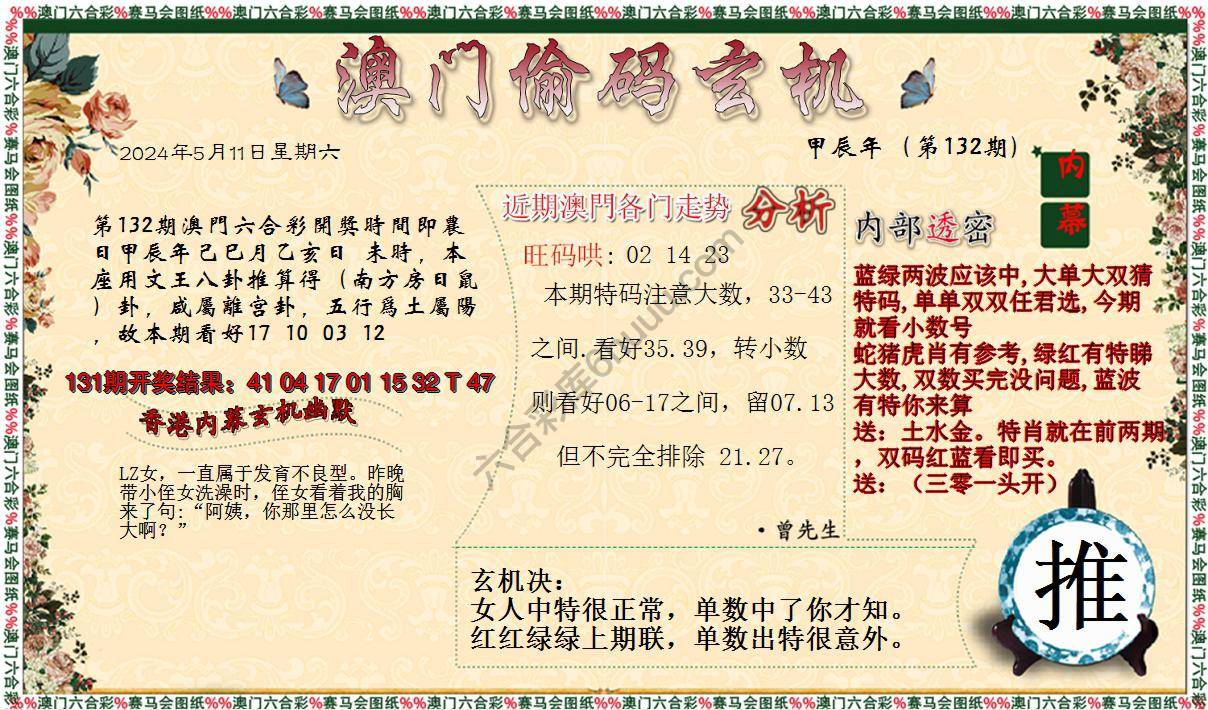 %%澳门六合彩%赛马会图纸%%澳门六合彩%赛马会图纸%%澳门六合彩%赛马会图纸%%澳门六合彩%赛马会图纸%%澳门六合彩%赛马会图纸%%澳门六合彩%赛马会图纸%%
澳门偷码玄机
2024年5月11日星期六
甲辰年（第132期）
内
幕
第132期澳門六合彩開獎時間即農
日甲辰年己巳月乙亥日 未時，本
座用文王八卦推算得（南方房日鼠
）卦，咸屬離宫卦，五行爲土屬陽
，故本期看好17 10 03 12
131期开奖结果：41 04 17 01 15 32 T 47
香港内幕玄机幽默
LZ女，一直属于发育不良型。昨晚
带小侄女洗澡时，侄女看着我的胸
来了句：“阿姨，你那里怎么没长
大啊？”
近期澳門各门走势 分析
旺码哄: 02 14 23
本期特码注意大数，33-43
之间.看好35.39，转小数
则看好06-17之间，留07.13
但不完全排除 21.27。
·曾先生
内部透密
蓝绿两波应该中,大单大双猜
特码,单单双双任君选,今期
就看小数号
蛇猪虎肖有参考,绿红有特睇
大数,双数买完没问题,蓝波
有特你来算
送：土水金。特肖就在前两期
，双码红蓝看即买。
送：（三零一头开）
玄机决：
女人中特很正常，单数中了你才知。
红红绿绿上期联，单数出特很意外。
推